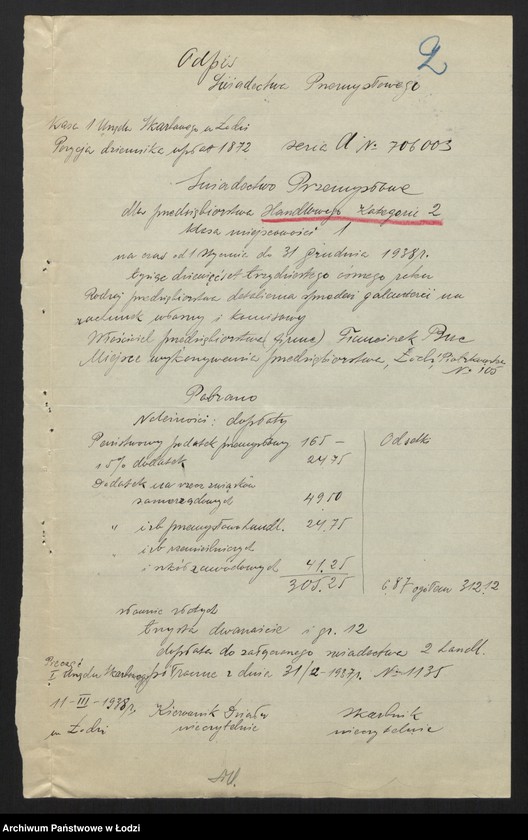 2
Odpis
Świadectwa Przemysłowego
Kasa 1 Urzędu Skarbowego w Łodzi
Pozycja dziennika wpłat 1872 seria A No 706003
Świadectwo Przemysłowe
dla przedsiębiorstwa Handlowego Kategorii 2
klasa miejscowości 1
na czas od 1 stycznia do 31 grudnia 1938 r.
tysiąc dziewięćset trzydziestego ósmego roku
Rodzaj przedsiębiorstwa detaliczna sprzedaż galanterii na
rachunek własny i komisowy
Właściciel przedsiębiorstwa (firma) Franciszek
Miejsce wykonywania przedsiębiorstwa, Łódź, Piotrkowska
No 105
Pobrano
Należności: dopłaty
Państwowy podatek przemysłowy 165 - Odsetki
15% dodatek 24.75
Dodatek na rzecz związków
samorządowych 49.50
" izb przemysłowo handl. 24.75
izb rzemieślniczych
i szkół zawodowych 41.25
305.25 6.87 ogółem 312.12
słownie złotych
trzysta dwanaście i gr. 12
dopłata do załączonego świadectwa 2 handl.
półroczne z dnia 31/12-1937 r. No 1135
Pieczęć
I Urzędu Skarbowego
11-III-1938 r. Kierownik Działu Skarbnik
w Łodzi nieczytelnie nieczytelnie
Archiwum Państwowe w Łodzi